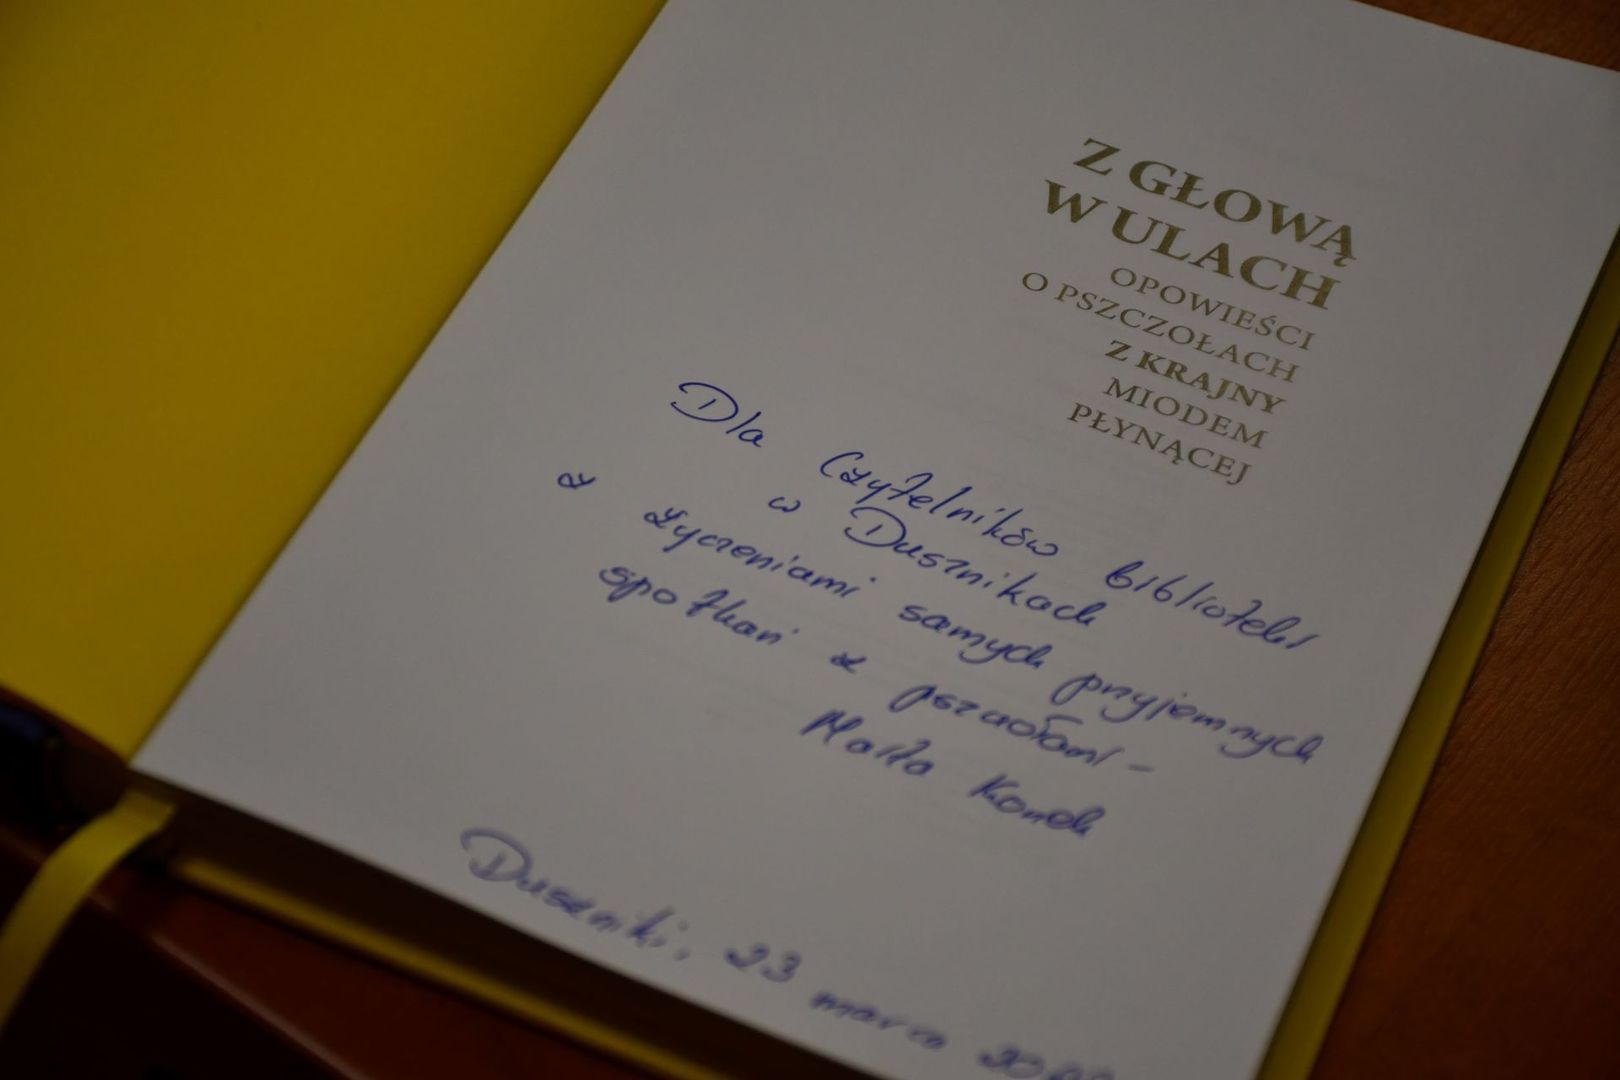 Z GŁOWĄ
W ULACH
OPOWIEŚCI
O PSZCZOŁACH
Z KRAJNY
MIODEM
PŁYNĄCEJ
Dla Czytelników biblioteki
w Dusznikach
z życzeniami samych przyjemnych
spotkań z pszczołami –
Duszniki, 23 marca